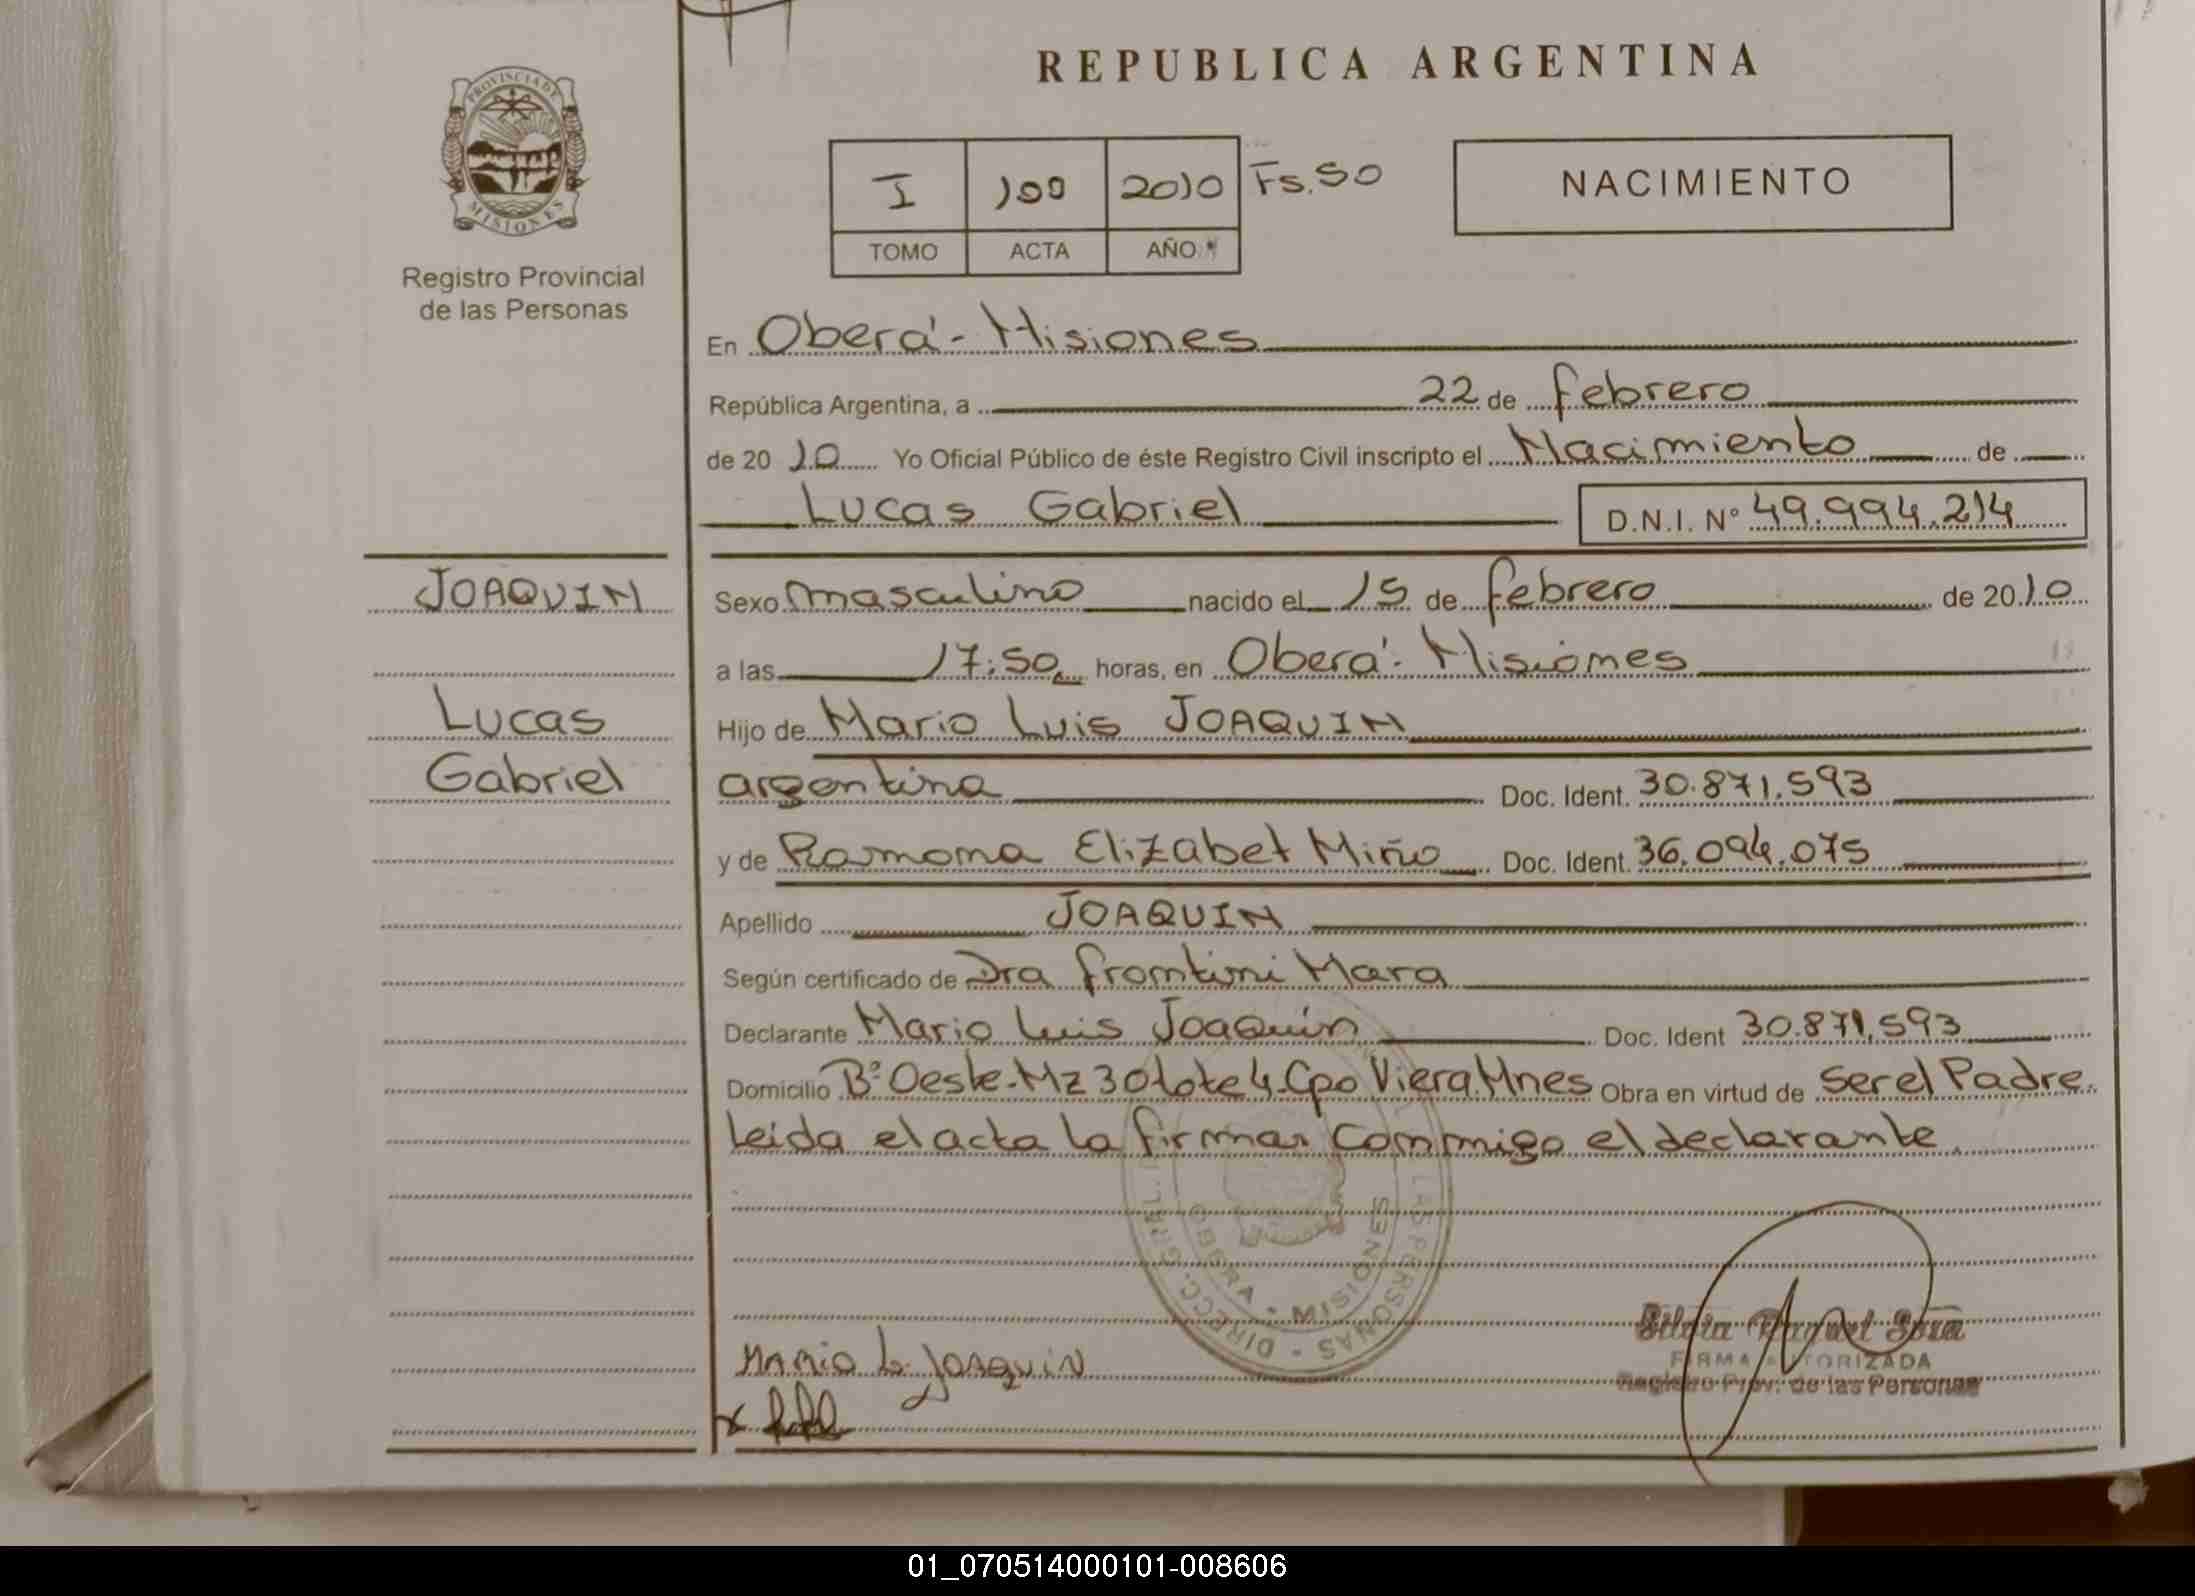 REPUBLICA ARGENTINA
PROVINCIA DE
MISIONES
Registro Provincial
de las Personas
I 100 2010 Fs. 50
TOMO ACTA AÑO
NACIMIENTO
En Oberá - Misiones
República Argentina, a 22 de febrero
de 20 10 Yo Oficial Público de éste Registro Civil inscripto el Nacimiento de
Lucas Gabriel D.N.I. N° 49.994.214
JOAQUIN
Lucas
Gabriel
Sexo masculino nacido el 15 de febrero de 20 10
a las 17:50 horas, en Oberá - Misiones
Hijo de Mario Luis JOAQUIN
argentina Doc. Ident. 30.871.593
y de Ramona Elizabet Miño Doc. Ident. 36.094.075
Apellido JOAQUIN
Según certificado de Dra frontini Mara
Declarante Mario Luis Joaquin Doc. Ident 30.871.593
Domicilio Bº Oeste-Mz 30 lote 4-Cpo Viera.Mnes Obra en virtud de ser el Padre.
Leida el acta la firman conmigo el declarante.
DIRECC. GRAL. LAS PERSONAS
OBERA - MISIONES
MARIO L. JOAQUIN
Silvia Raquel
FIRMA AUTORIZADA
Registro Prov. de las Personas
01_070514000101-008606